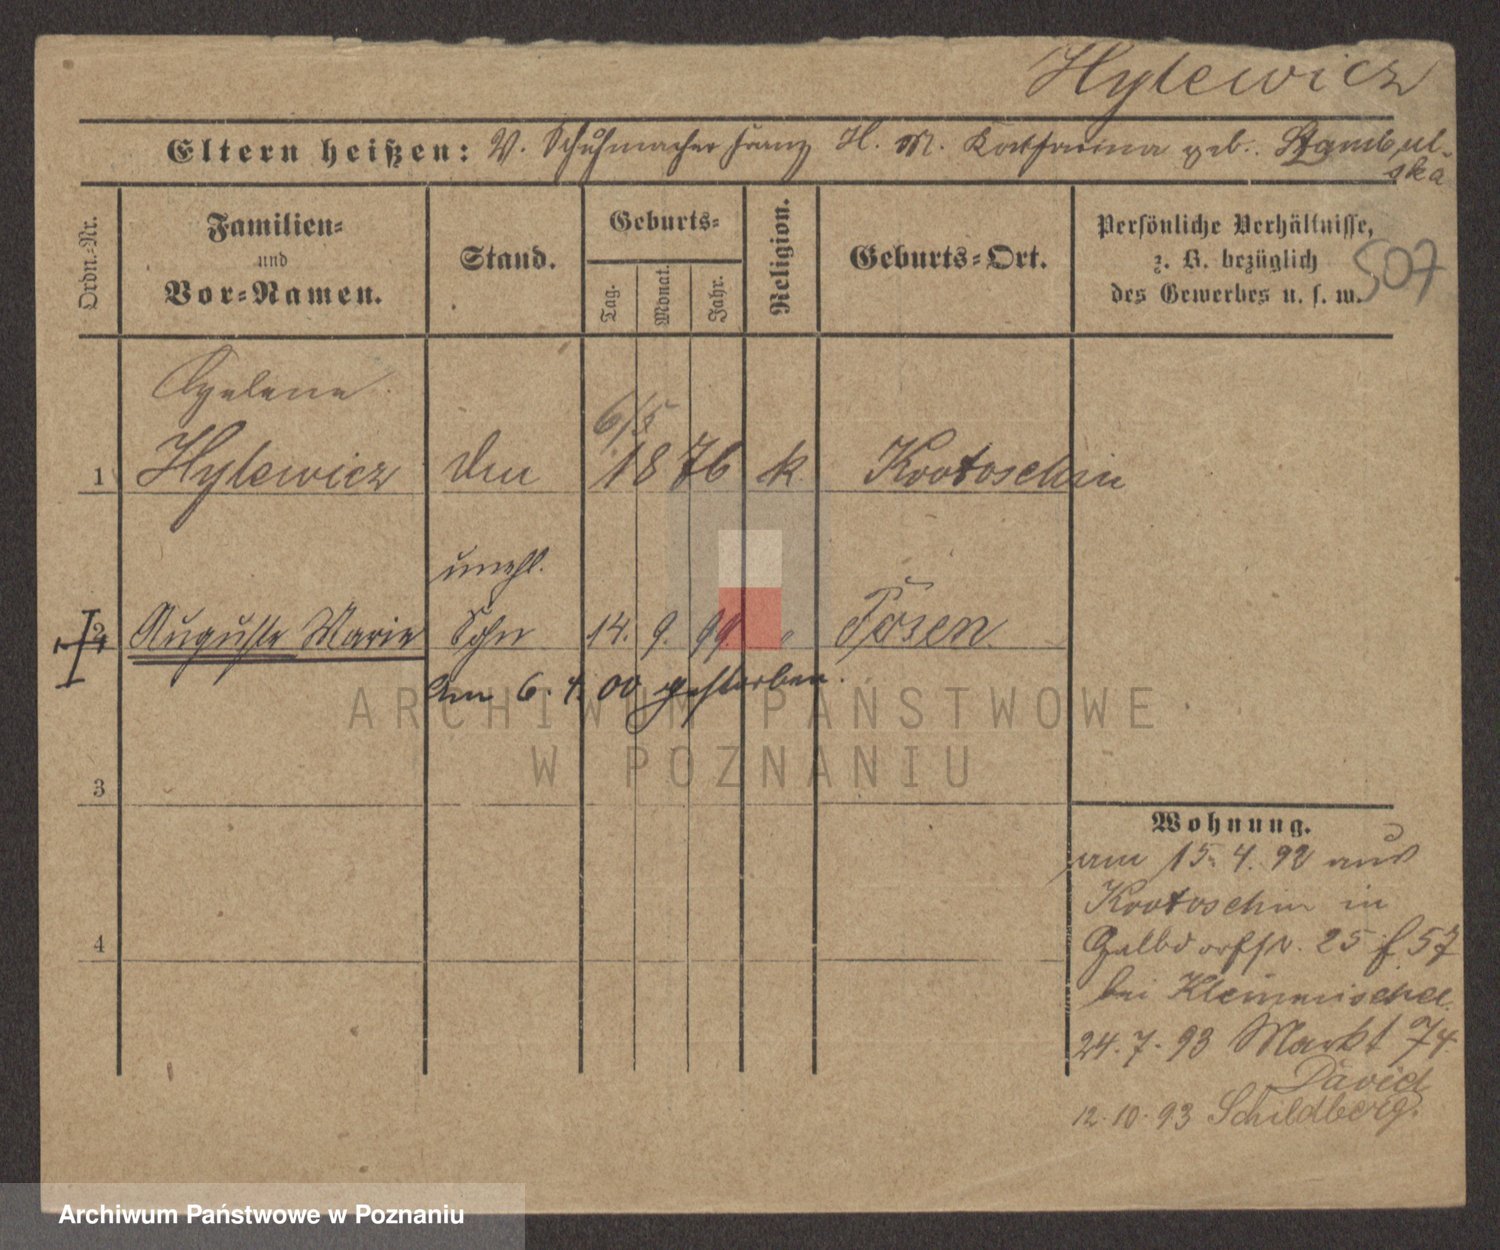 Hylewicz
Eltern heißen: V. Schuhmacher Franz H. M. Katharina geb. Stambul-
ska
Ordn.-Nr.
Familien-
und
Vor-Namen.
Stand.
Geburts-
Tag.
Monat.
Jahr.
Religion.
Geburts-Ort.
Persönliche Verhältnisse,
z. B. bezüglich
des Gewerbes u. s. w.
507
Helene
6/5
1 Hylewicz 1876 k. Krotoschin
unehl.
2 Auguste Marie Sohn 14. 9. 99. " Posen
am 6. 4. 00 gestorben.
3
4
Wohnung.
am 15. 4. 92 aus
Krotoschin in
25 f 57
bei
24. 7. 93 Markt 74
David
12. 10. 93 Schildberg.
ARCHIWUM PAŃSTWOWE
W POZNANIU
Archiwum Państwowe w Poznaniu